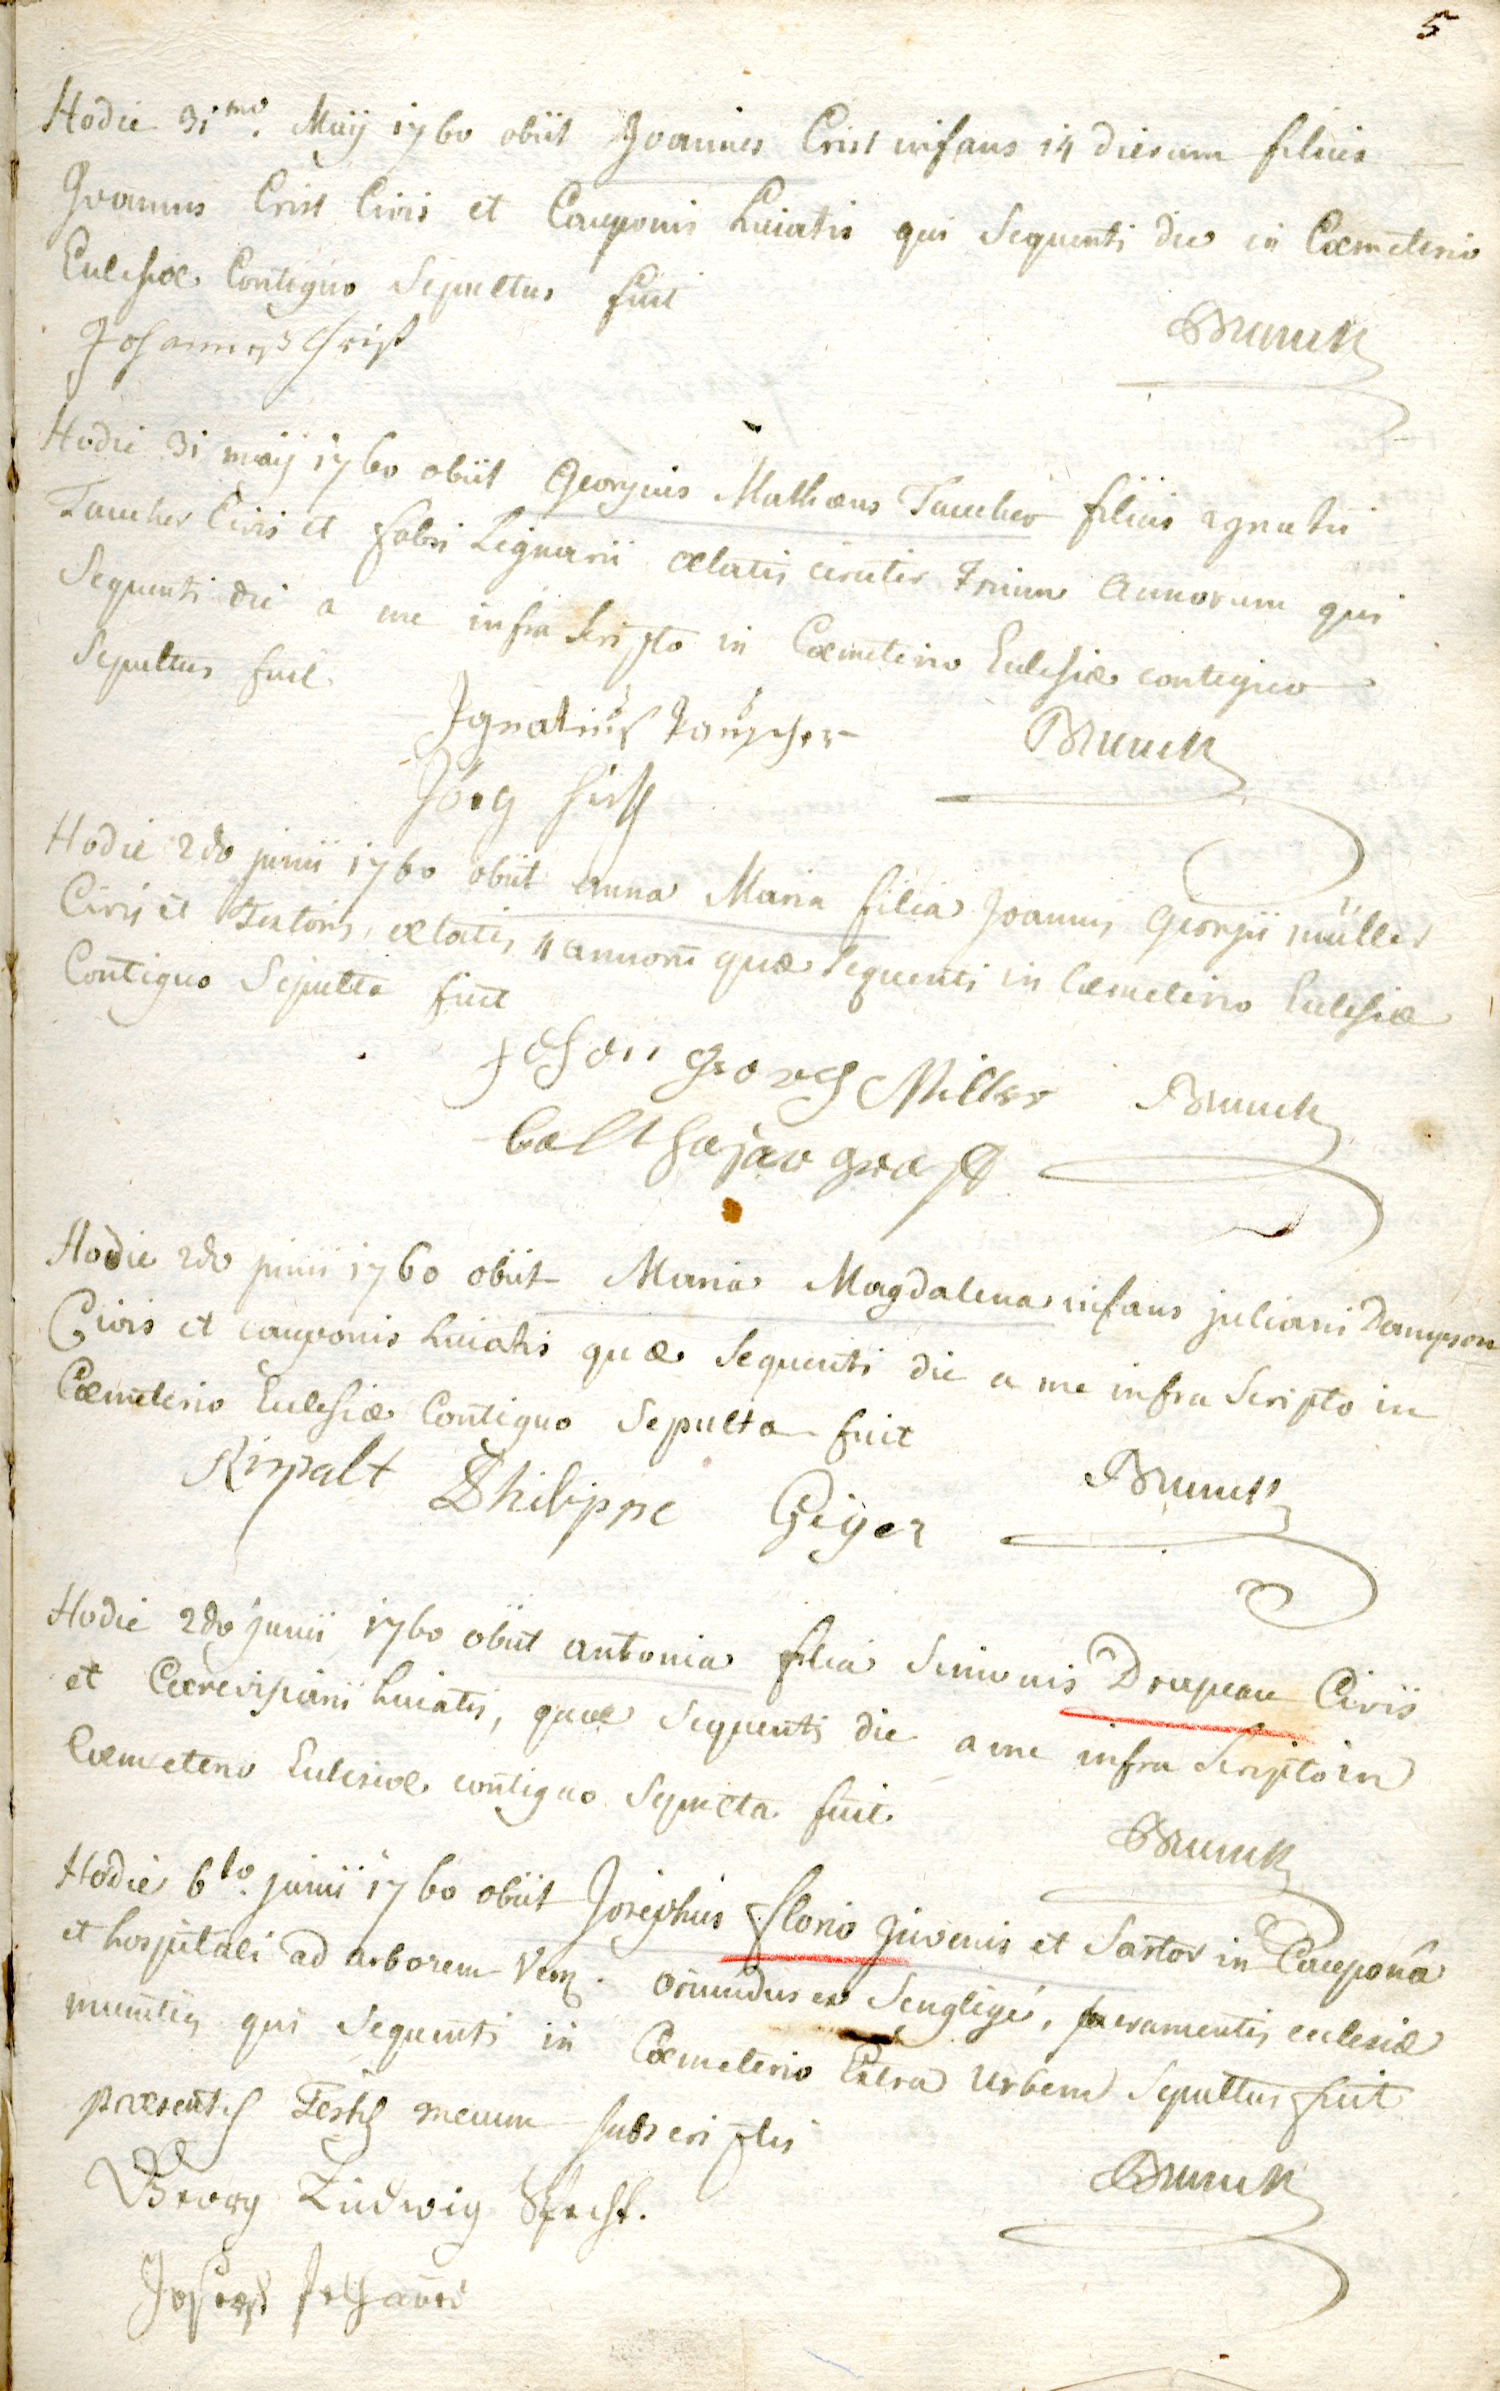 5
Hodie 31mo. Maij 1760 obiit Joannes Crist infans 14 dierum filius
Joannis Crist Civis et Cauponis huiatis qui sequenti die in Cœmeterio
Eclesiæ Contiguo Sepultus fuit
Johannes Christ Brunck
Hodie 31 maij 1760 obiit Georgius Mathæus Taucher filius ignatii
Taucher Civis et fabri Lignarii ætatis circiter Trium Annorum qui
Sequenti die a me infra Scripto in Cœmeterio Eclesiæ contiguo
Sepultus fuit
Ignatius Brunck
Jörg
Hodie 2do junii 1760 obiit anna Maria filia Joannis Georgii müller
Civis et Textoris, ætatis 4 annorū quæ sequenti in Cœmeterio Eclesiæ
Contiguo Sepulta fuit
Johan Georg Miller Brunck
balthasar graff
Hodie 2do junii 1760 obiit Maria Magdalena infans juliani Dampson
Civis et cauponis huiatis quæ sequenti die a me infra Scripto in
Cœmeterio Eclesiæ Contiguo Sepulta fuit
Philippe Geiger Brunck
Hodie 2do junii 1760 obiit antonia filia Simonis Drapeau Civis
et Cœrevisiarii huiatis, quæ sequenti die a me infra Scripto in
Cœmeterio Eclesiæ contiguo Sepulta fuit
Brunck
Hodie 6to. junii 1760 obiit Josephus florio juvenis et Sartor in Cauponâ
et hospitali ad arborem oriundus ex , sacramentis ecclesiæ
munitus qui Sequenti in Cœmeterio Extra Urbem Sepultus fuit
præsentib Testib mecum subscriptis
Georg Ludwig Specht. Brunck
Joseph